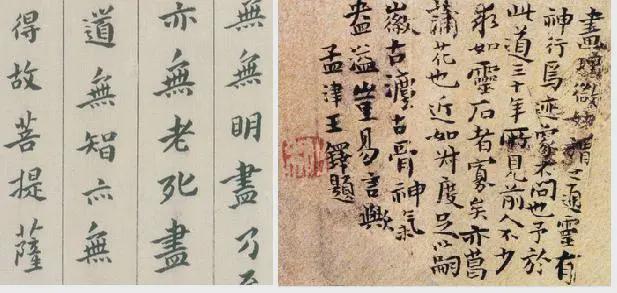 無無明盡乃至
亦無老死盡
道無智亦無
得故菩提薩
畫微妙之通靈有
神行焉迹象不問也予於
此道三十年所見前人不少
求如靈石者寡矣亦菖
蒲花也近如對度足以嗣
徽古澹古骨神氣
盎溢豈易言歟
孟津王鐸題